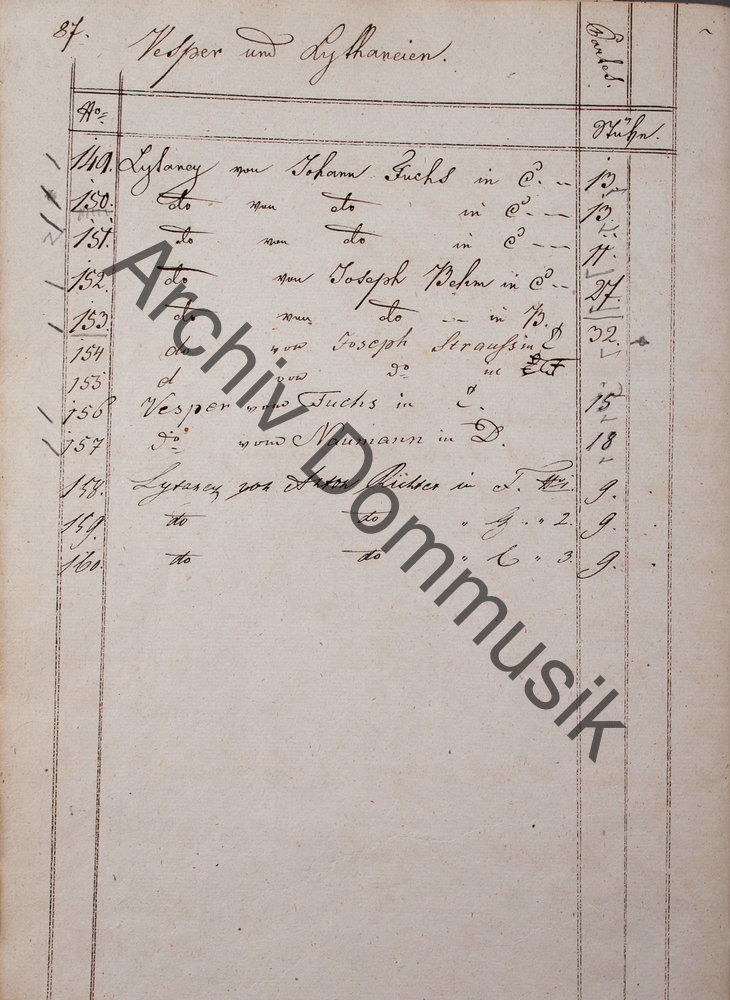 87. Vesper und Lythaneien. Partes.
No. Stükn.
149. Lytaney von Johann Fuchs in C. -- 13.
150. do von do in C -- 13.
151. do von do in C -- 11.
152. do von Joseph Behm in C -- 27.
153. do von do -- in B. 32.
154 do von Joseph Strauss in C
155 d von do in F
156 Vesper vom Fuchs in C. 15
157 do vom Naumann in D. 18
158. Lytaney von Anton Richter in F. No 1. 9.
159. do do " G. " 2. 9.
160. do do " C " 3. 9.
Archiv Dommusik